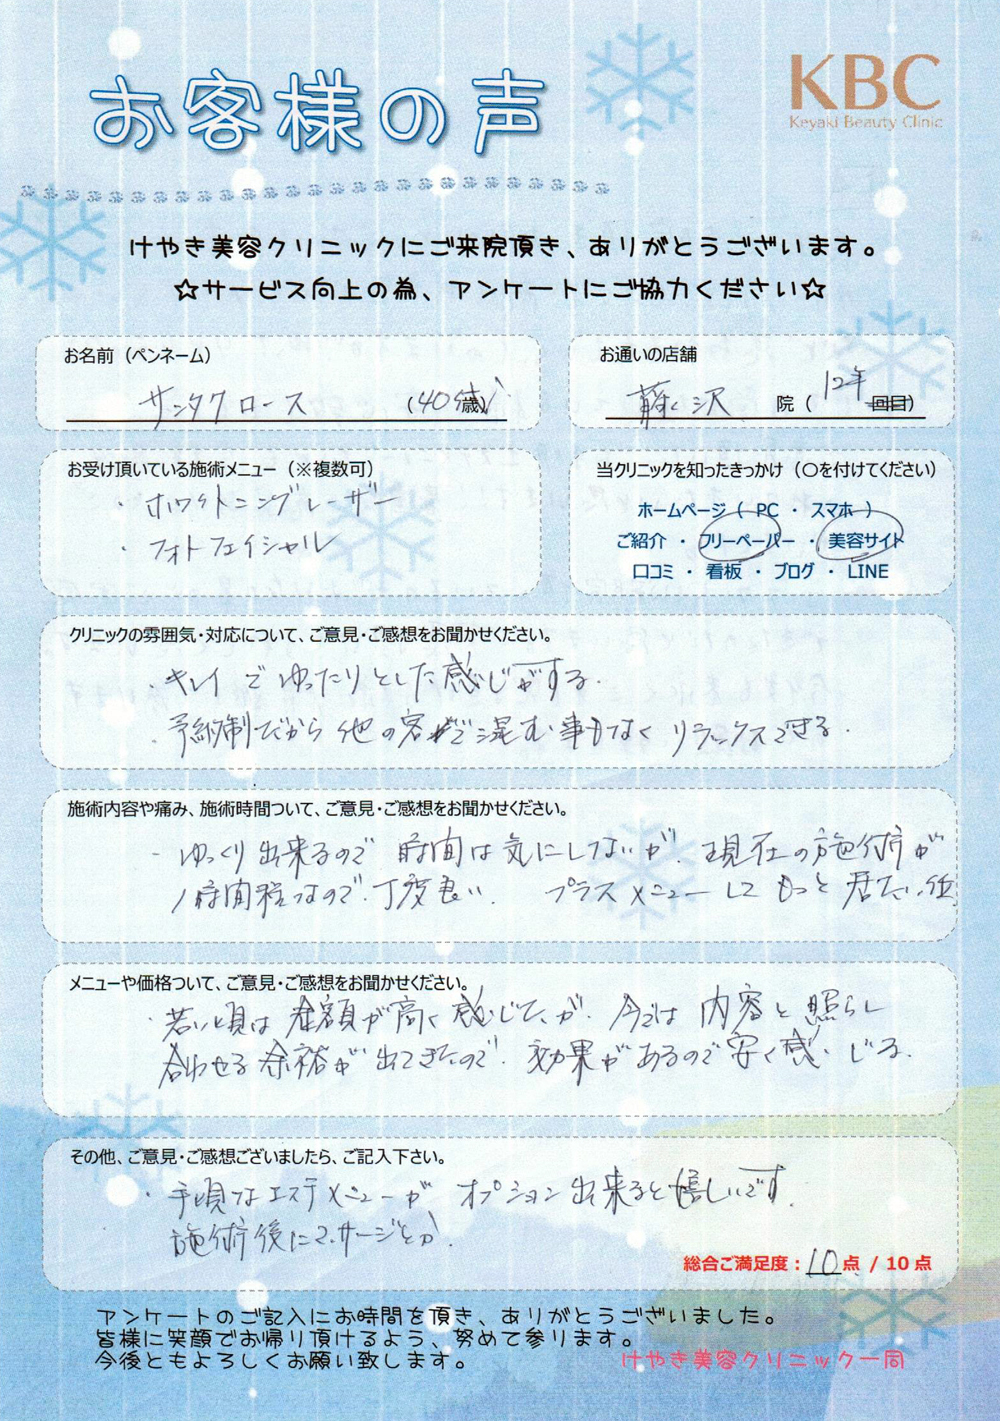 お客様の声
KBC
Keyaki Beauty Clinic
けやき美容クリニックにご来院頂き、ありがとうございます。
☆サービス向上の為、アンケートにご協力ください☆
お名前（ペンネーム）
サンタクロース （40歳）
お通いの店舗
藤沢 院（ 12年 回目）
お受け頂いている施術メニュー（※複数可）
・ホワイトニングレーザー
・フォトフェイシャル
当クリニックを知ったきっかけ（〇を付けてください）
ホームページ（ PC ・ スマホ ）
ご紹介 ・ フリーペーパー ・ 美容サイト
口コミ ・ 看板 ・ ブログ ・ LINE
クリニックの雰囲気・対応について、ご意見・ご感想をお聞かせください。
・キレイでゆったりとした感じがする.
・予約制だから他の客で混む事もなくリラックスできる.
施術内容や痛み、施術時間ついて、ご意見・ご感想をお聞かせください。
・ゆっくり出来るので時間は気にしないが、現在の施術が
1時間程なので、丁度良い. プラスメニューしてもっと居たい位
メニューや価格ついて、ご意見・ご感想をお聞かせください。
・若い頃は金額が高く感じたが、今では内容と照らし
合わせる余裕が出てきたので、効果があるので安く感じる.
その他、ご意見・ご感想ございましたら、ご記入下さい。
・手頃なエステメニューがオプション出来ると嬉しいです.
施術後にマッサージとか.
総合ご満足度：10点 / 10点
アンケートのご記入にお時間を頂き、ありがとうございました。
皆様に笑顔でお帰り頂けるよう、努めて参ります。
今後ともよろしくお願い致します。
けやき美容クリニック一同